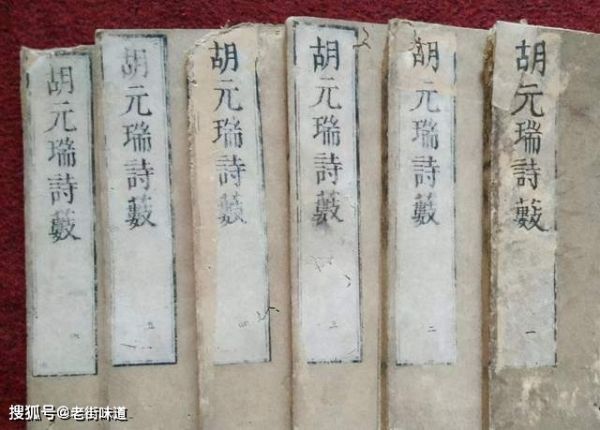 胡元瑞詩藪
一
胡元瑞詩藪
二
胡元瑞詩藪
三
胡元瑞詩藪
胡元瑞詩藪
五
胡元瑞詩藪
六
搜狐号@老街味道